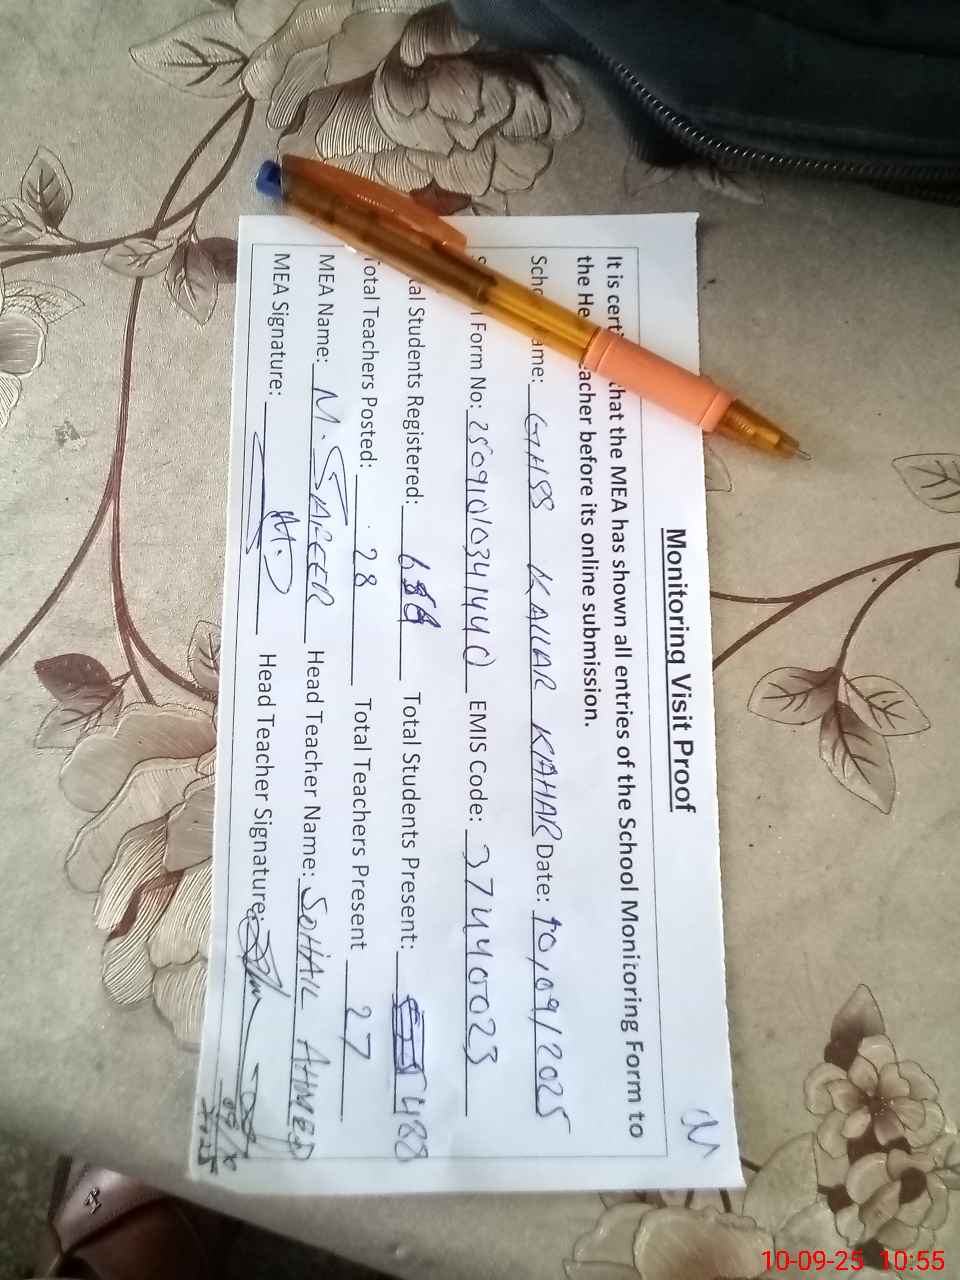 Monitoring Visit Proof
It is that the MEA has shown all entries of the School Monitoring Form to
the before its online submission.
GHSS KALLAR KAHAR Date: 10/09/2025
Form No: EMIS Code: 37440023
Students Registered: Total Students Present: 488
Total Teachers Posted: 28 Total Teachers Present 27
MEA Name: M. Head Teacher Name: SOHAIL AHMED
MEA Signature: Head Teacher Signature:
10-09-25 10:55